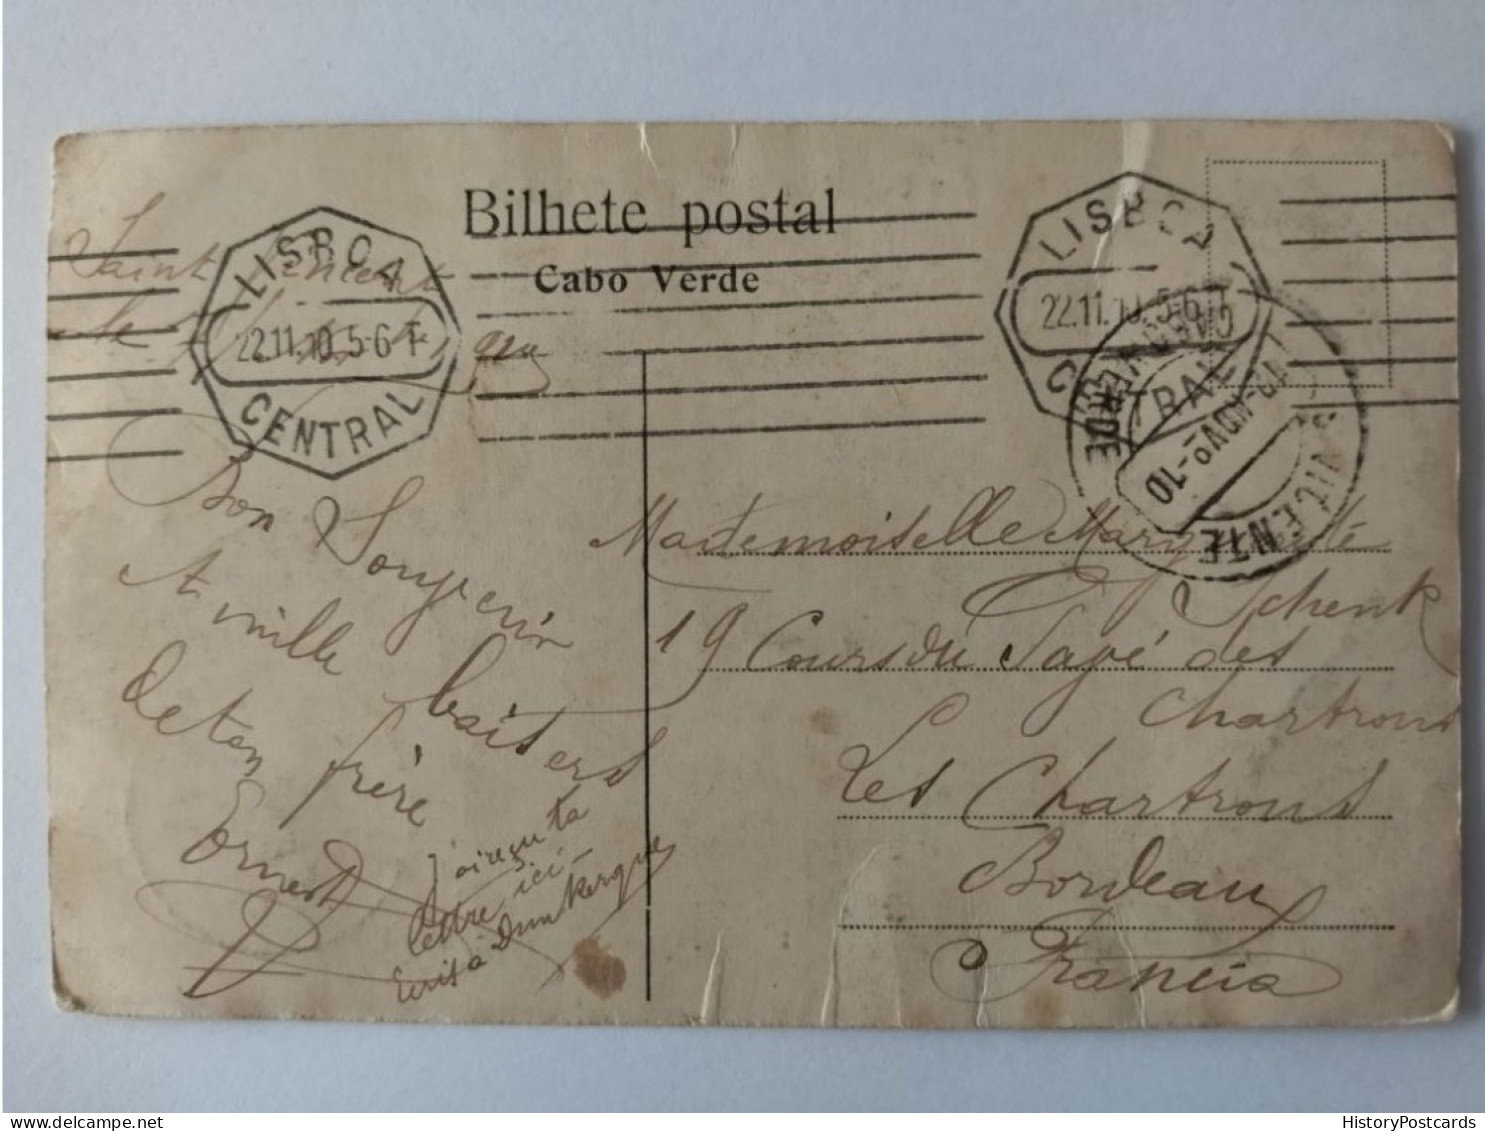 Bilhete postal
Cabo Verde
LISBOA
22.11.10.5-6 T
CENTRAL
LISBOA
22.11.10.5-6 T
CENTRAL
CABO VERDE
10-NOV-10
S. VICENTE
Saint Vincent
le
Bon Souvenir
et mille baisers
de ton frère
Ernest
J'ai reçu ta
lettre ici
Ecris à Dunkerque
Mademoiselle Mary
Schenk
19 Cours du Pavé des
Chartrons
Les Chartrons
Bordeaux
Francia
delcampe.net
HistoryPostcards